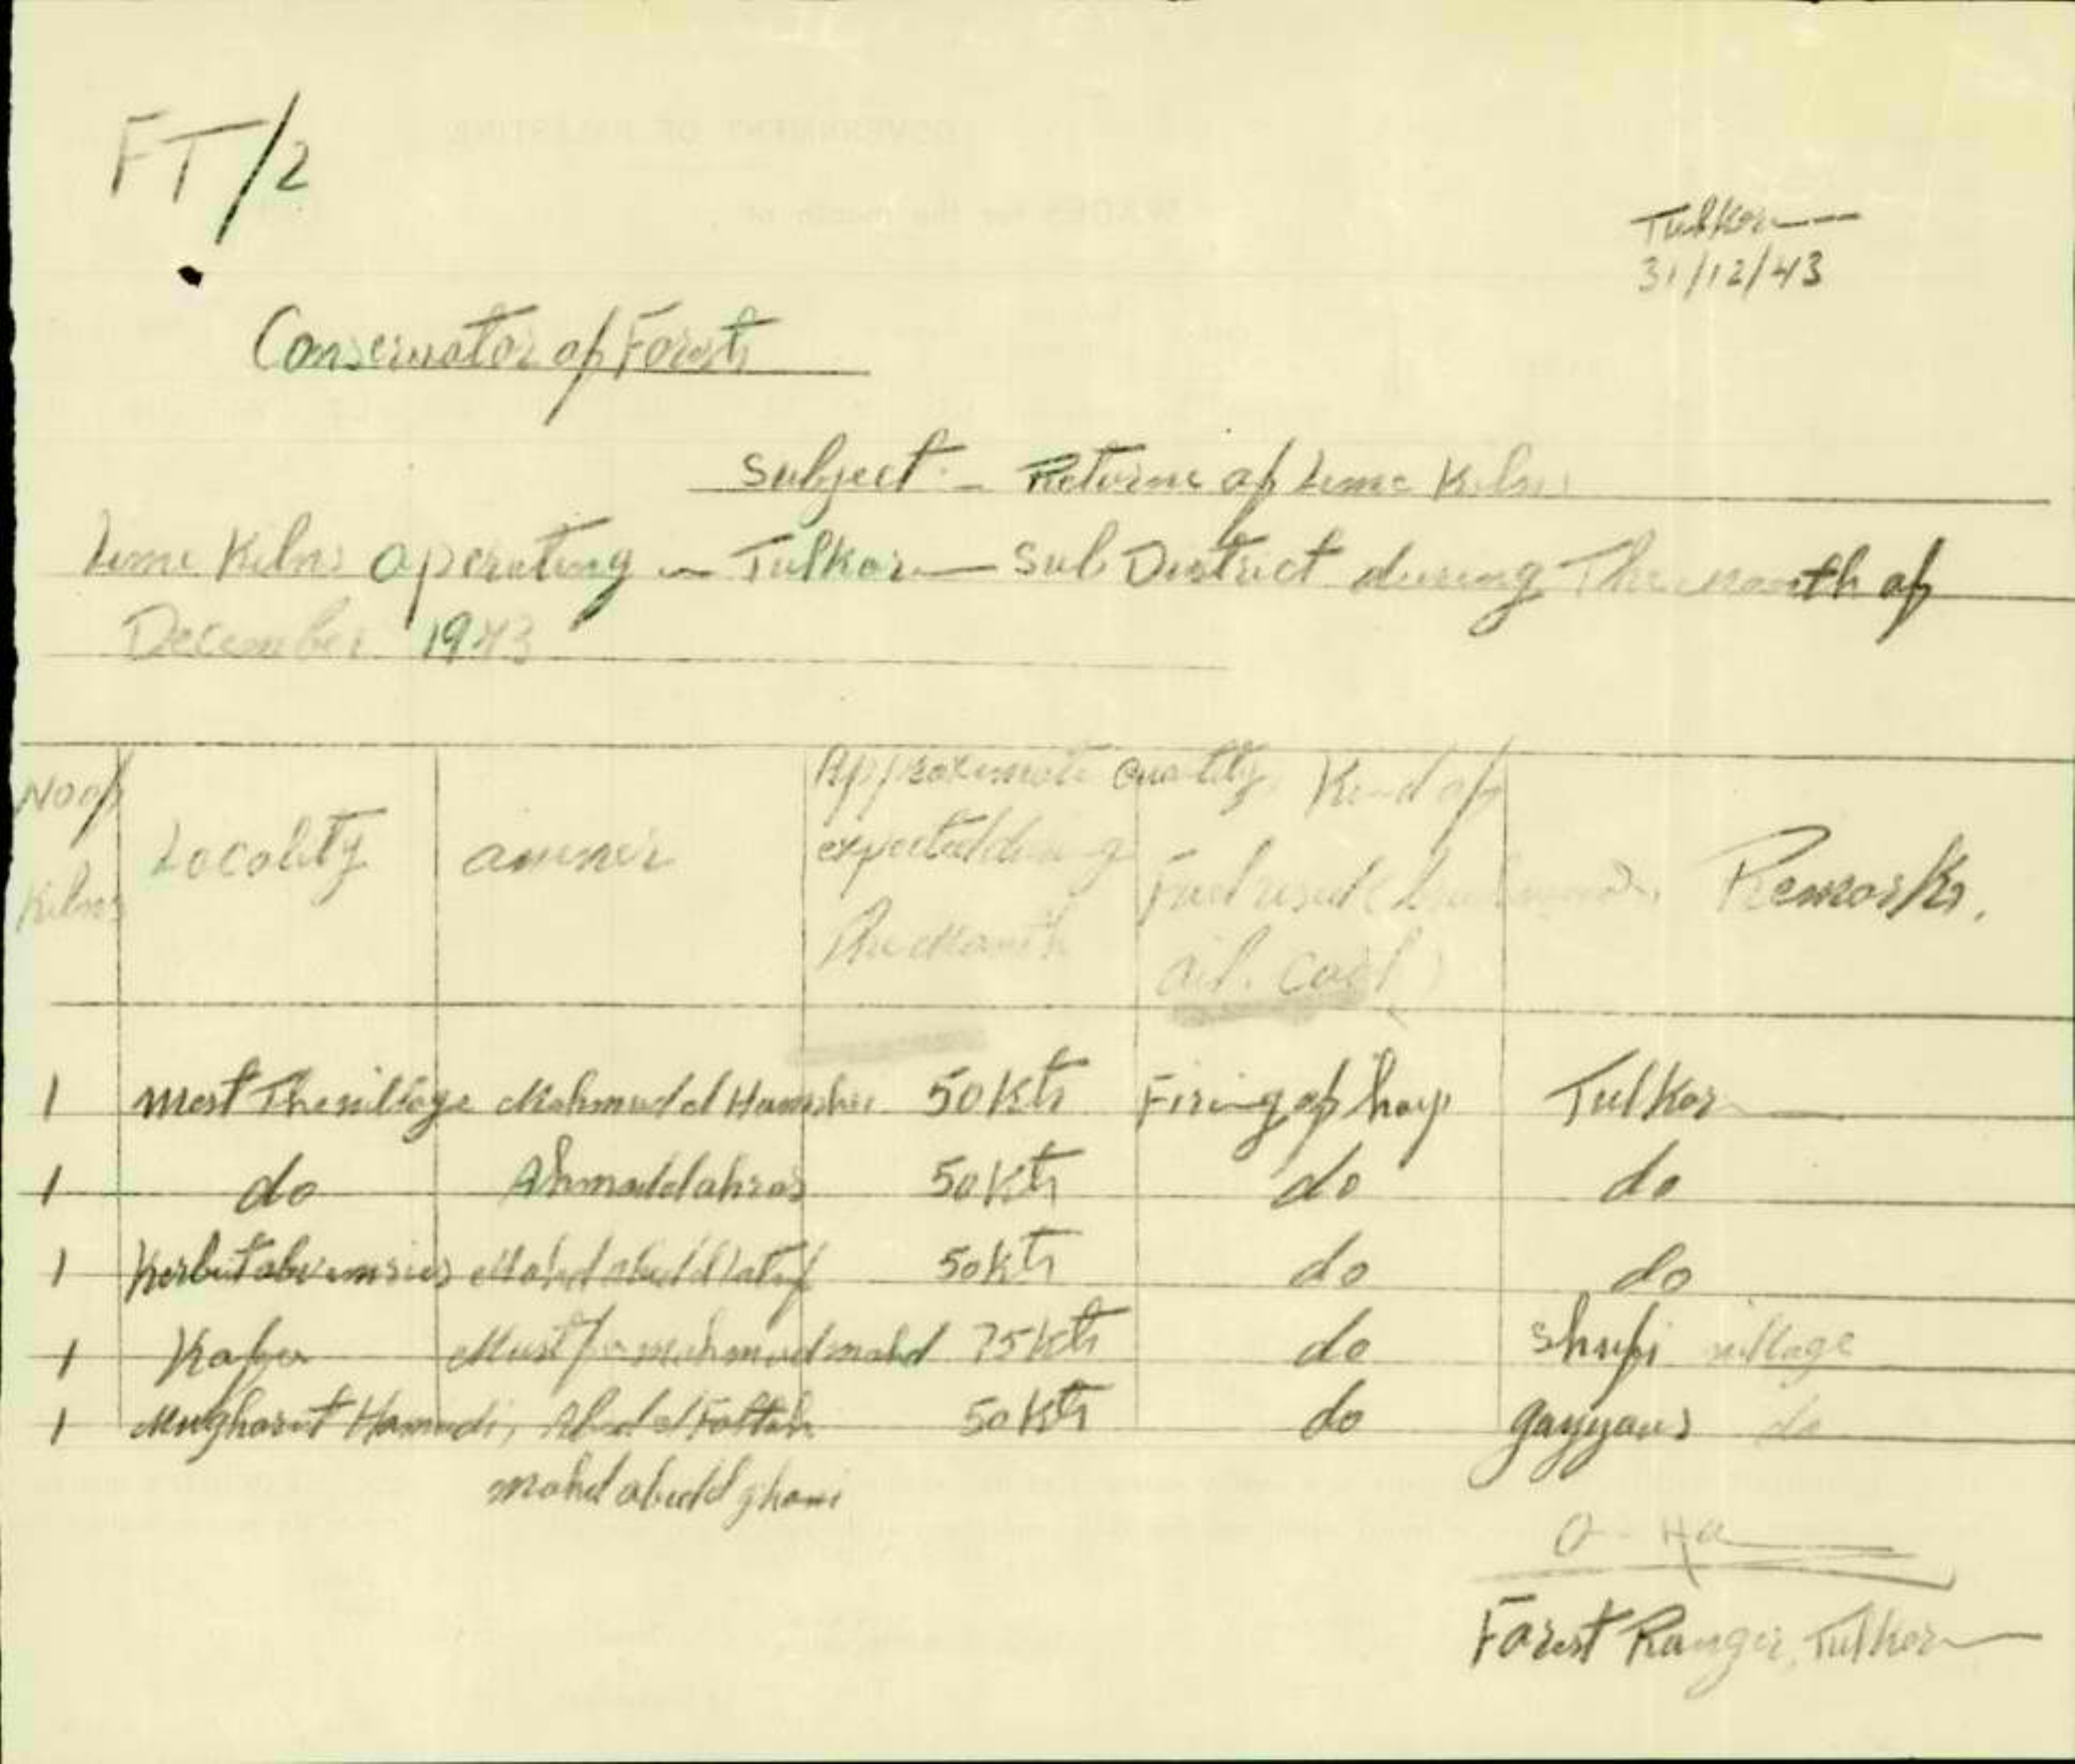 FT/2
Tulkarm
31/12/43
Conservator of Forests
Subject:- Returne of Lime Kilns
Lime Kilns operating in Tulkarm Sub District during The month of
December 1943
No of Kilns Locality owner Approximate quantity expected during The Month Kind of Fuel used ( oil. coal) Remarks.
1 west The village Mahmud el Hamshri 50 Kts Firing of hay Tulkarm
1 do Ahmad 50 Kts do do
1 Kerbet Mohd abed el latif 50 Kts do do
1 Kafa Mustfa mahmud mohd 75 Kts do Shufi village
1 Mugharet Hamudi, Abed el Fattah 50 Kts do gayyous do
mohd abed el ghani
Forest Ranger, Tulkarm